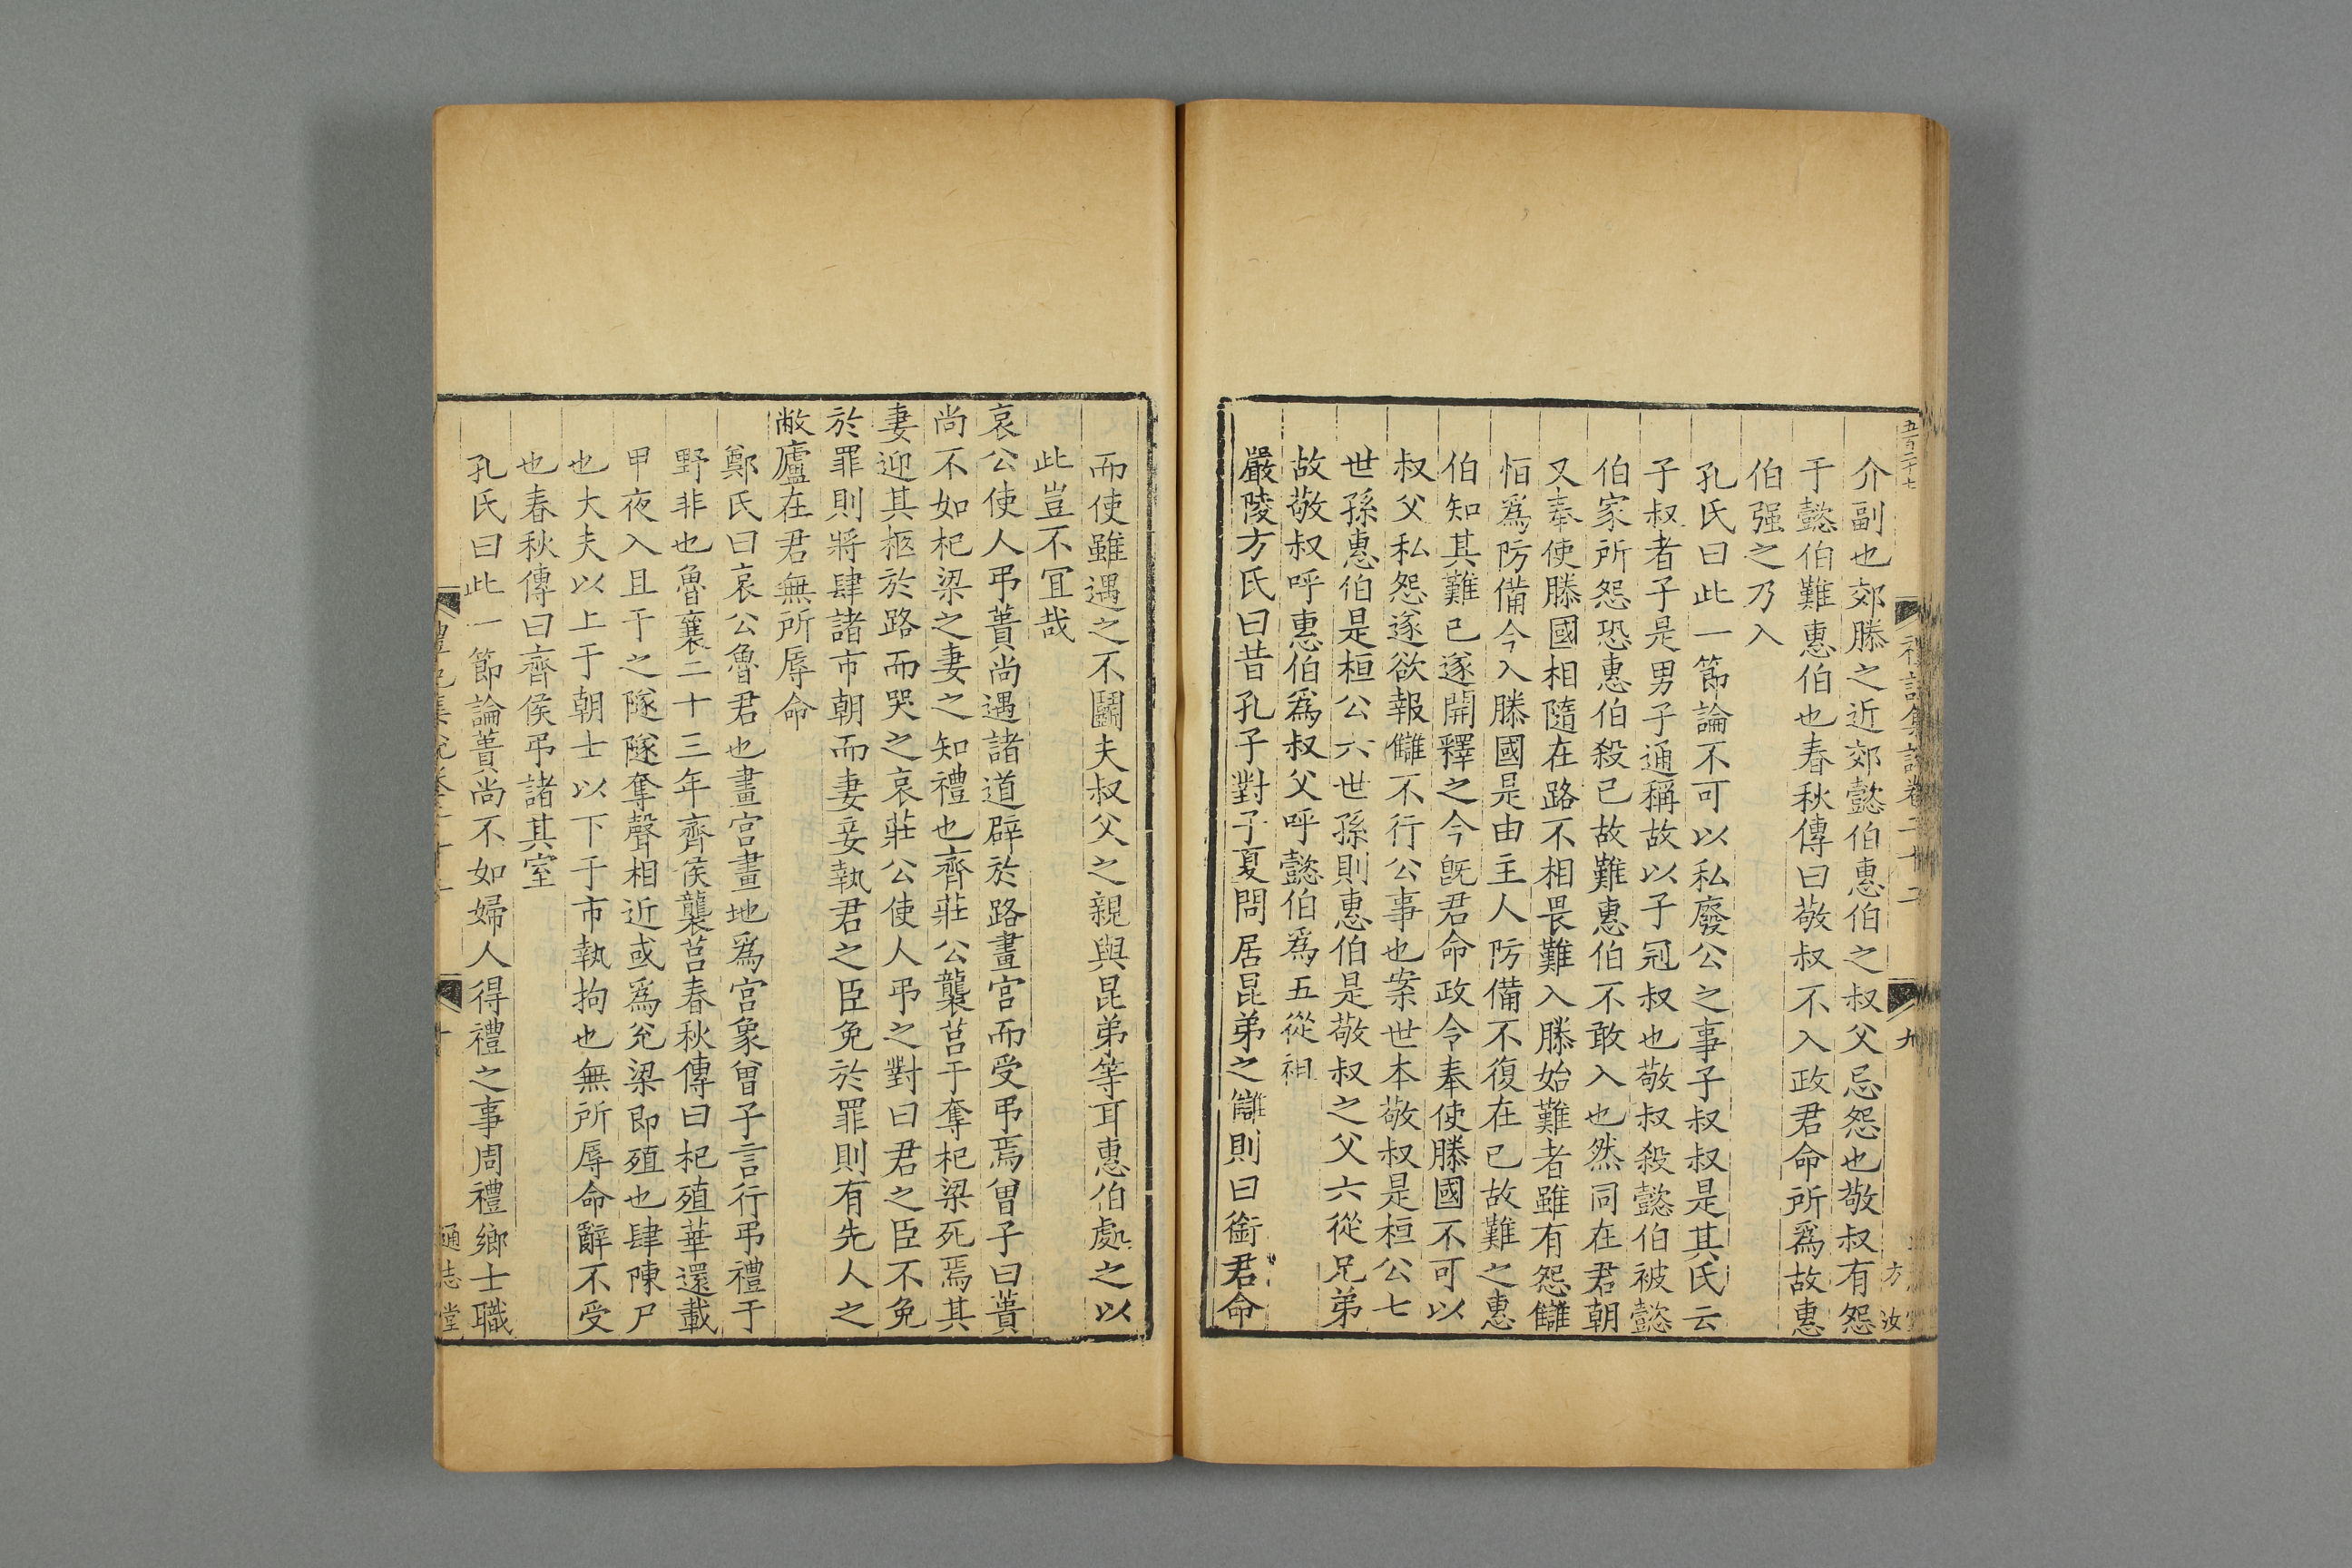 五百二十七
介副也郊滕之近郊懿伯惠伯之叔父忌怨也敬叔有怨
于懿伯難惠伯也春秋傳曰敬叔不入政君命所爲故惠
伯强之乃入
孔氏曰此一節論不可以私廢公之事子叔叔是其氏云
子叔者子是男子通稱故以子冠叔也敬叔殺懿伯被懿
伯家所怨恐惠伯殺已故難惠伯不敢入也然同在君朝
又奉使滕國相隨在路不相畏難入滕始難者雖有怨讎
恒爲防備今入滕國是由主人防備不復在已故難之惠
伯知其難已遂開釋之今旣君命政令奉使滕國不可以
叔父私怨遂欲報讎不行公事也案世本敬叔是桓公七
世孫惠伯是桓公六世孫則惠伯是敬叔之父六從兄弟
故敬叔呼惠伯爲叔父呼懿伯爲五從祖
嚴陵方氏曰昔孔子對子夏問居昆弟之讎則曰銜君命
禮記集說卷二十二
九
方汝
而使雖遇之不鬬夫叔父之親與昆弟等耳惠伯處之以
此豈不宜哉
哀公使人弔蕢尚遇諸道辟於路畫宮而受弔焉曾子曰蕢
尚不如杞梁之妻之知禮也齊莊公襲莒于奪杞梁死焉其
妻迎其柩於路而哭之哀莊公使人弔之對曰君之臣不免
於罪則將肆諸市朝而妻妾執君之臣免於罪則有先人之
敝廬在君無所辱命
鄭氏曰哀公魯君也畫宮畫地爲宮象曾子言行弔禮于
野非也魯襄二十三年齊侯襲莒春秋傳曰杞殖華還載
甲夜入且于之隧隧奪聲相近或爲兊梁即殖也肆陳尸
也大夫以上于朝士以下于市執拘也無所辱命辭不受
也春秋傳曰齊侯弔諸其室
孔氏曰此一節論蕢尚不如婦人得禮之事周禮鄉士職
通志堂